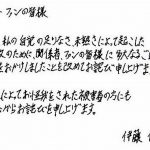 ファンの皆様
私の自覚の足りなさ、未熟さによって起こした
のために、関係者、ファンの皆様に多大なるご
をおかけしましたことを改めてお詫び申し上げます
によってお怪我をされた被害者の方にも
からお詫びを申し上げます。
伊藤